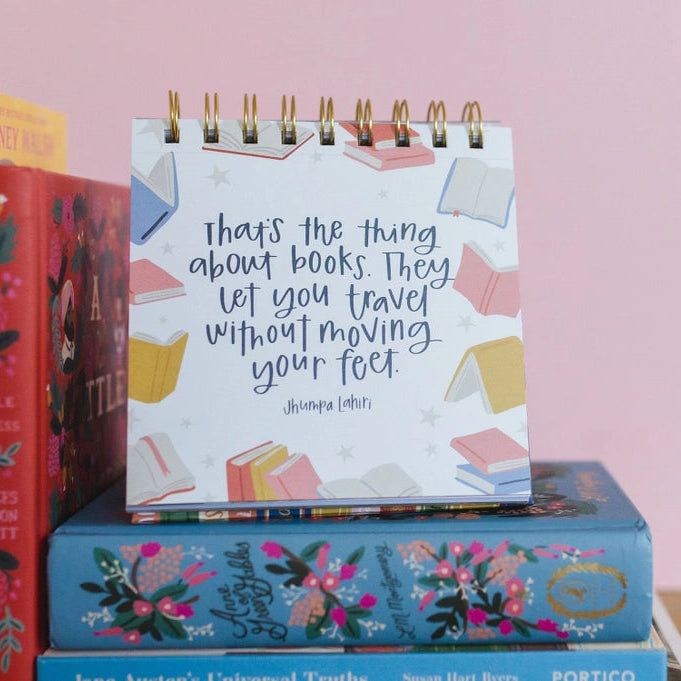 NEY WALSH
That's the thing
about books. They
let you travel
without moving
your feet.
Jhumpa Lahiri
A
TTLE
Anne of
Green Gables
L.M. Montgomery
Jane Austen's Universal Truths
Susan Hart Byers
PORTICO